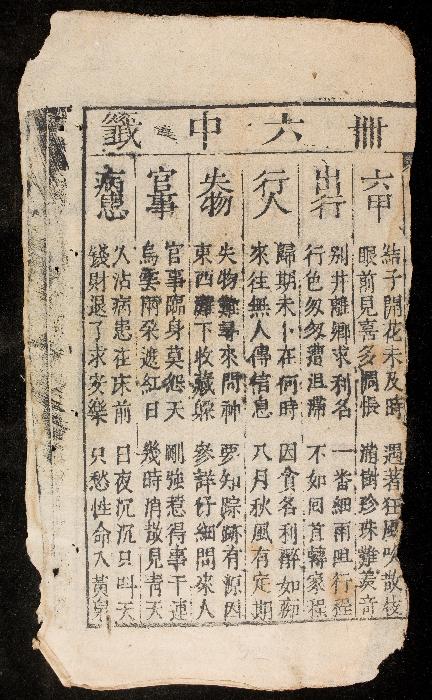 冊六中籤
六甲
結子開花未及時 遇著狂風吹散枝
眼前見喜多惆悵 滿樹珍珠難羨奇
出行
別井離鄉求利名 一番細雨阻行程
行色匆匆遭阻滯 不如回首轉家程
行人
歸期未卜在何時 因貪名利醉如痴
來往無人傳信息 八月秋風有定期
失物
失物難尋來問神 要知踪跡有源因
東西 下收藏躲 參詳仔細問來人
官事
官事臨身莫怨天 剛強惹得事干連
烏雲雨朵遮紅日 幾時消散見青天
病患
久沾病患在床前 日夜沉沉只叫天
錢財退了求安樂 只愁性命入黃泉